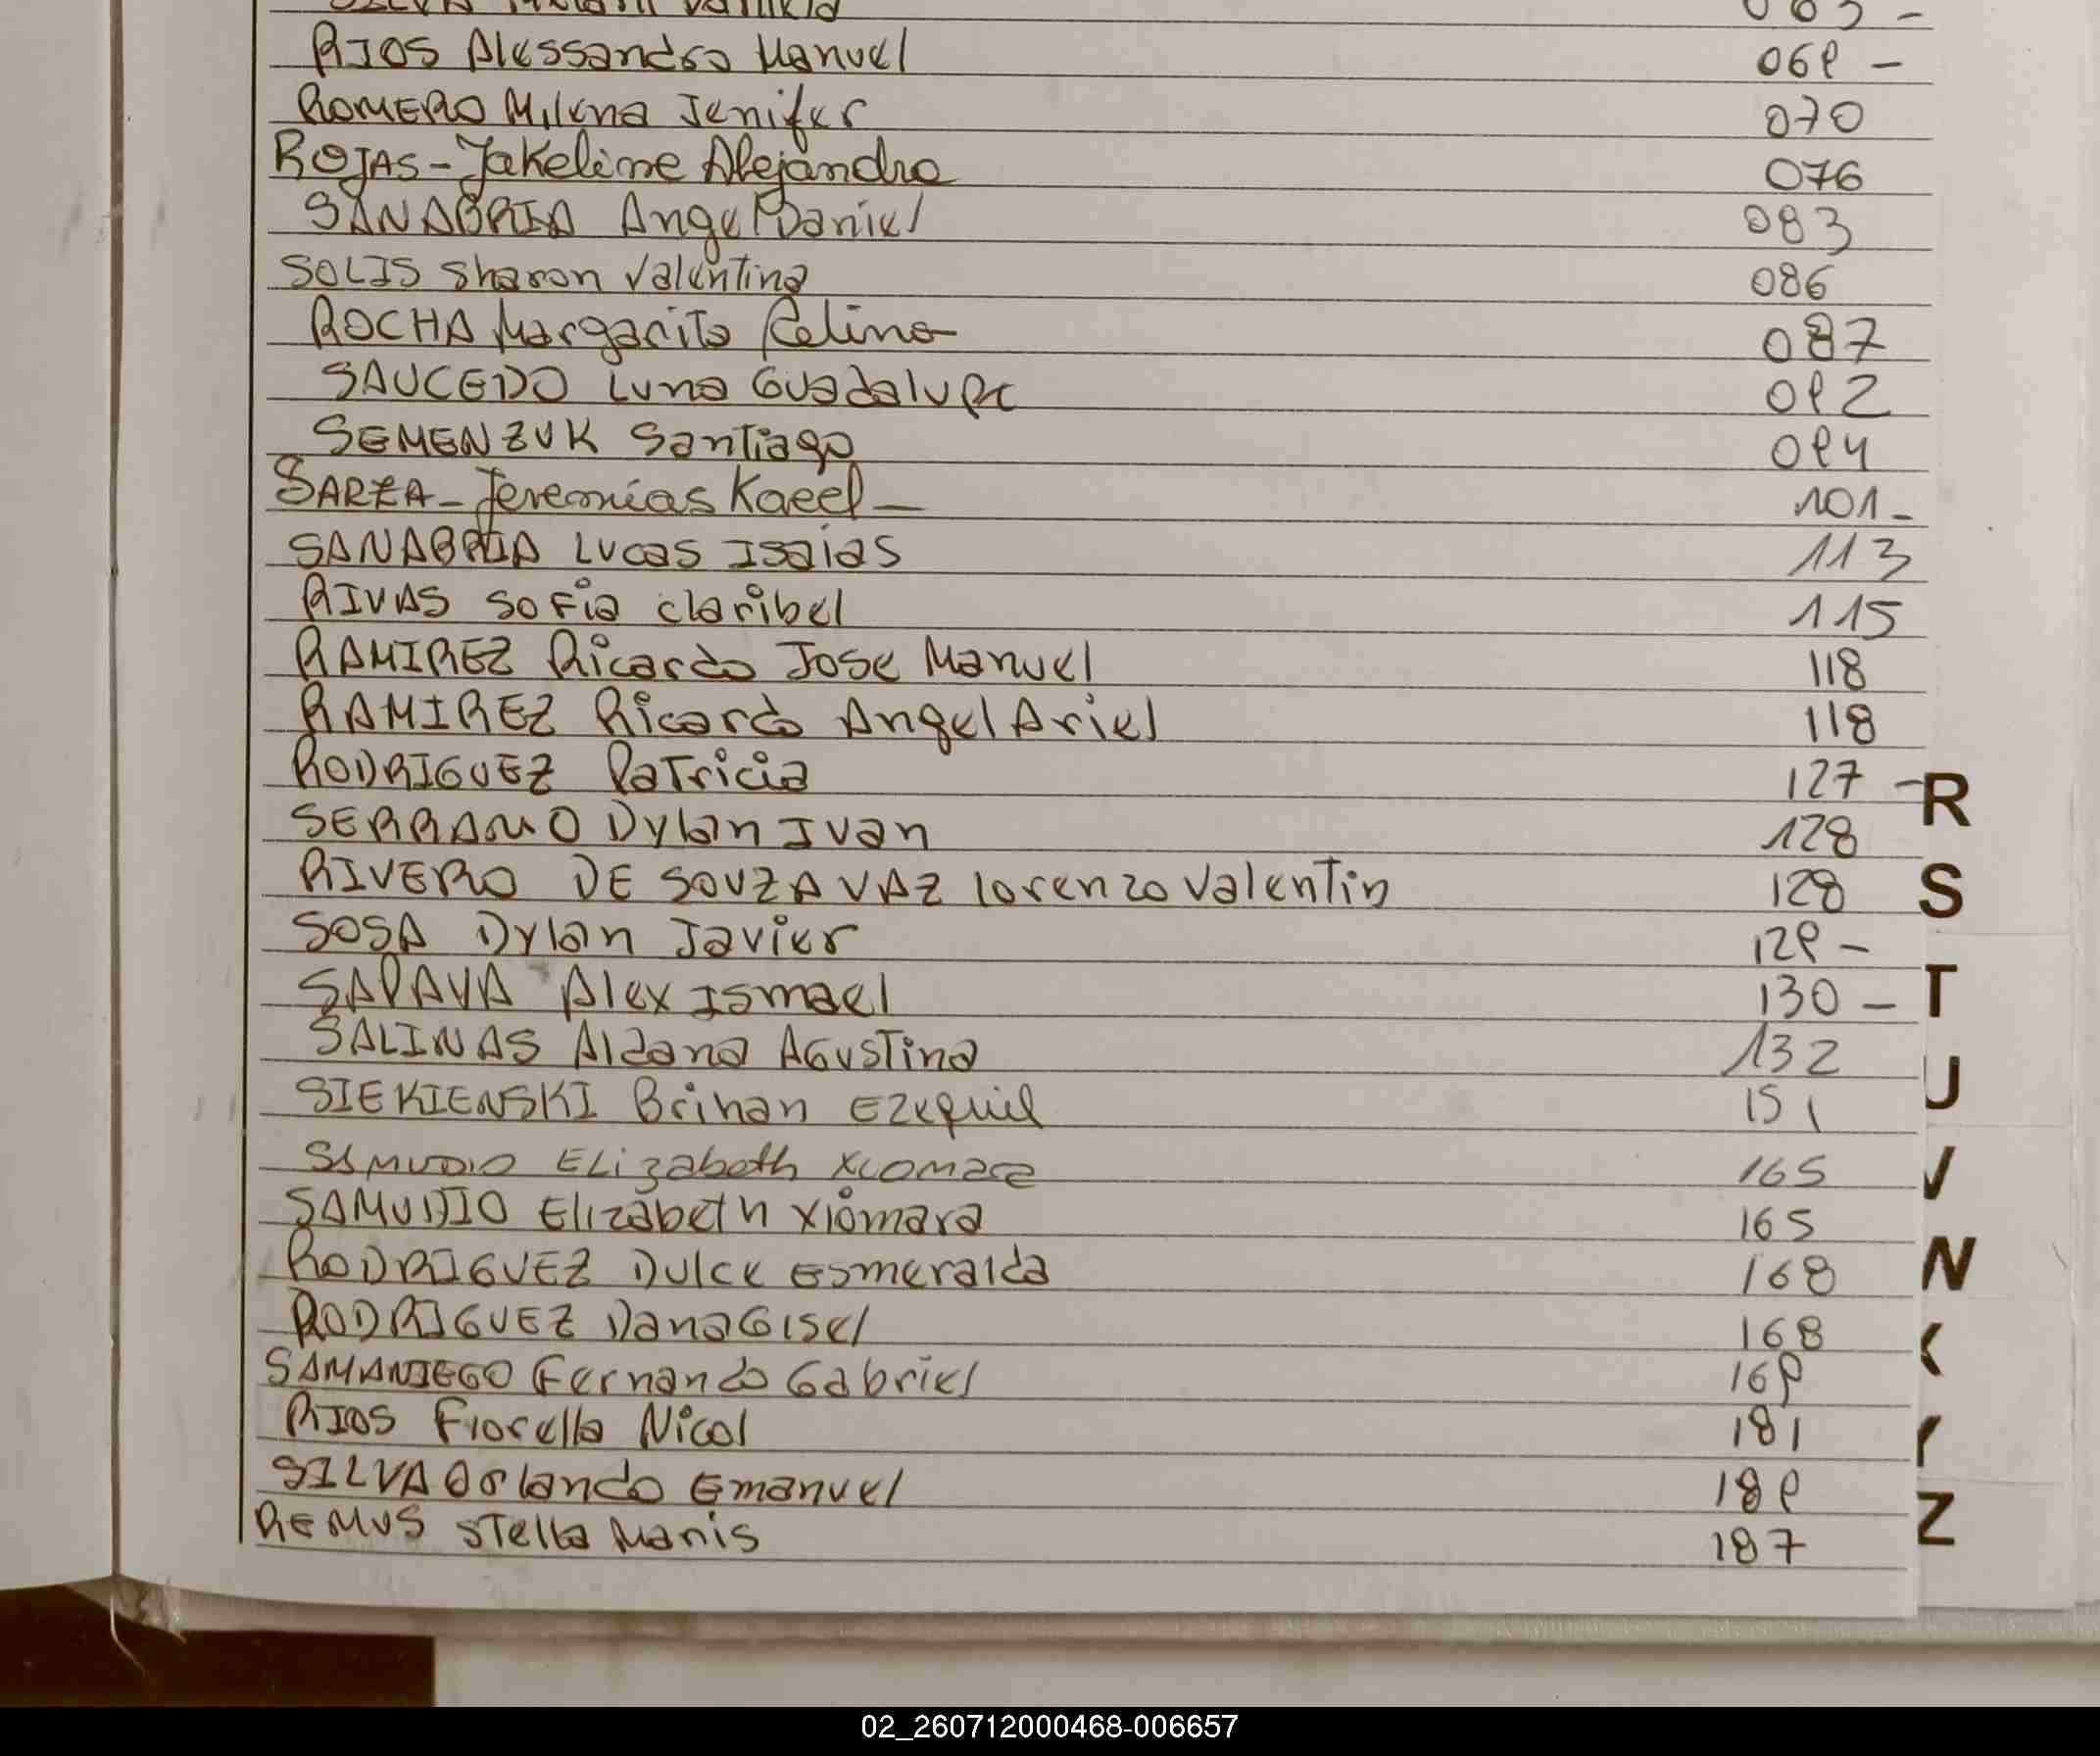 SILVA Valkiria 065 -
RIOS Alessandro Manuel 069 -
ROMERO Milena Jenifer 070
ROJAS - Jakeline Alejandra 076
SANABRIA Angel Daniel 083
SOLIS Sharon Valentina 086
ROCHA Margarita Celina 087
SAUCEDO Luna Guadalupe 092
SEMENZUK Santiago 094
SARZA - Jeremías Kaeel - 101 -
SANABRIA Lucas Isaias 113
RIVAS Sofia Claribel 115
RAMIREZ Ricardo Jose Manuel 118
RAMIREZ Ricardo Angel Ariel 118
RODRIGUEZ Patricia 127 -
R
SERRANO Dylan Ivan 128
RIVERO DE SOUZA VAZ Lorenzo Valentin 128
S
SOSA Dylan Javier 129 -
SAPAVA Alex Ismael 130 -
T
SALINAS Aldana Agustina 132
SIEKIENSKI Brihan Ezequiel 151
U
SAMUDIO Elizabeth Xiomara 165
V
SAMUDIO Elizabeth Xiomara 165
RODRIGUEZ Dulce Esmeralda 168
RODRIGUEZ Dana Gisel 168
SAMANIEGO Fernando Gabriel 169
RIOS Fiorella Nicol 181
SILVA Orlando Emanuel 189
Z
REMUS Stella Maris 187
02_260712000468-006657